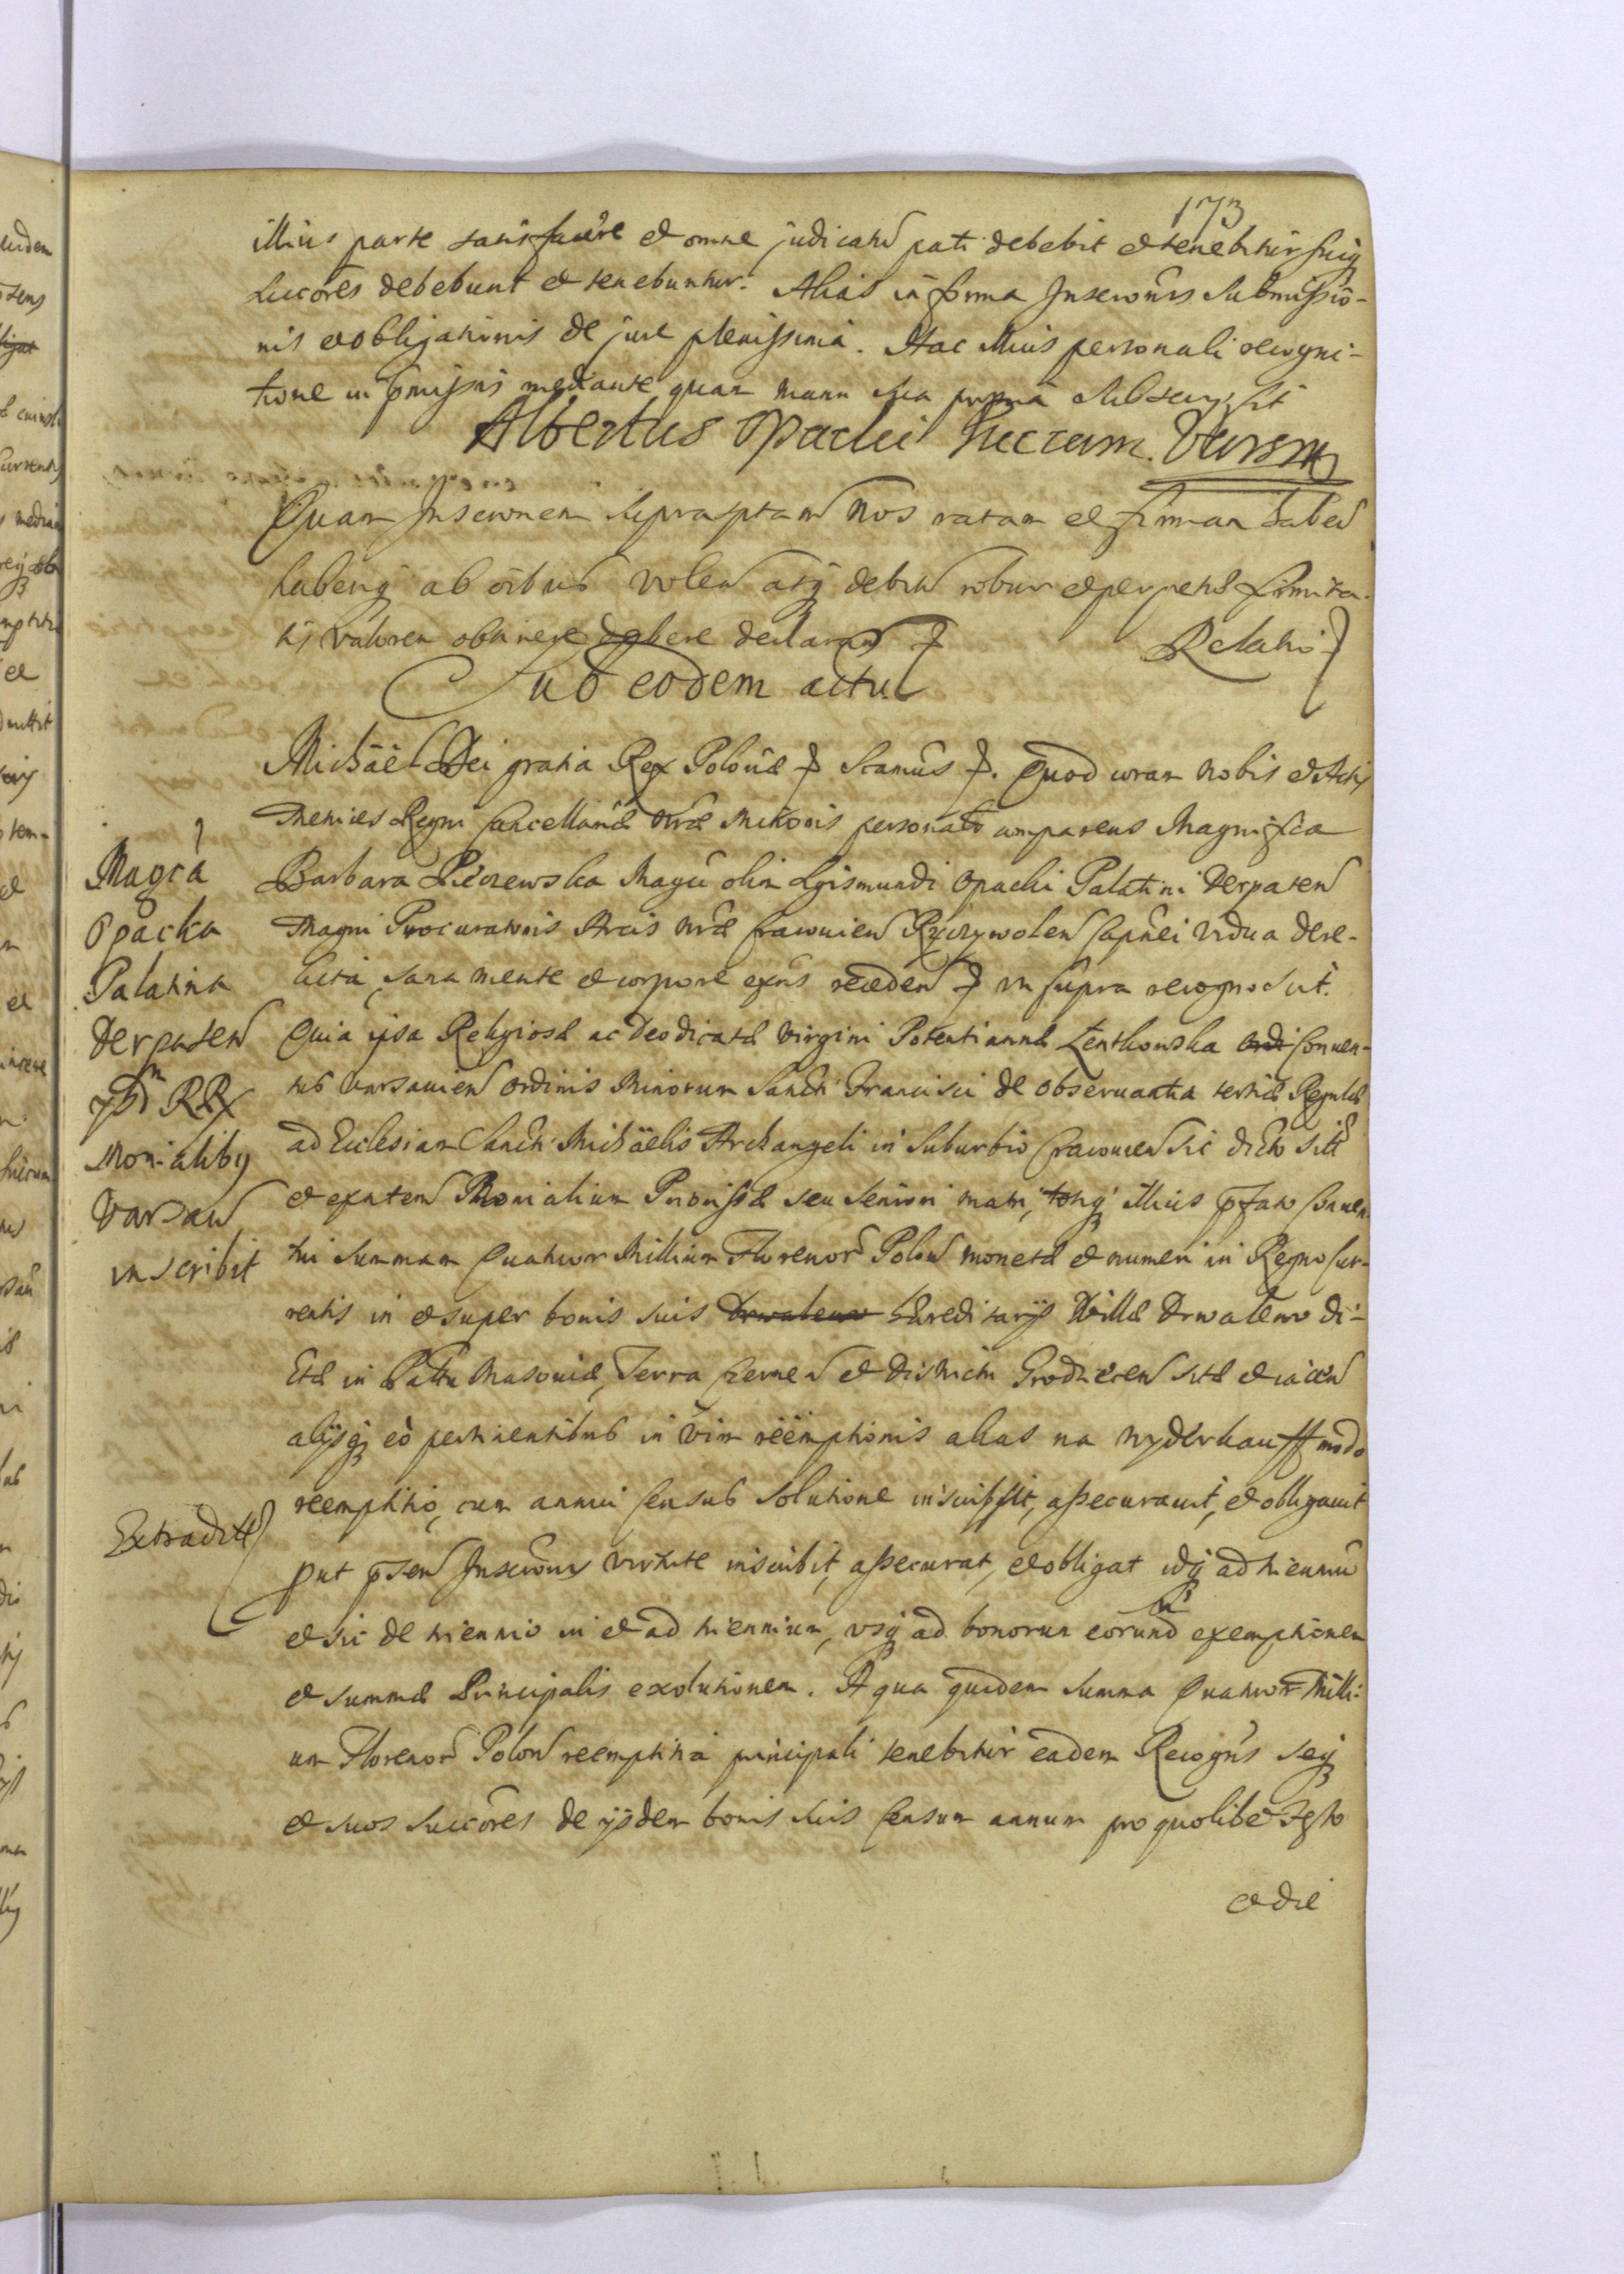 173
illius parte satisfacere et omne judicatū pati debebit et tenebitur suiq̃
succōres debebunt et tenebuntur. Alias in forma Inscrōnis submissio-
nis et obligationis de jure plenissima. Hac illius personali recogni-
tione in p̄missis mediante, quam manu sua propria subscripsit
Albertus Opacki Succam. Varsm
Quam Inscrōnem suprascptam nos ratam et firmam haben
haberiq̃ ab oībus volen atq̃ debitū robur et perpetuæ firmita-
tis valorem obtinere debere declaram
Relatio
Sub eodem actu
Michäel Dei gratia Rex Poloniæ Scamūs. Quod coram nobis et Actis
Metrices Regni Cancellariæ Maioris personalr comparens Magnifica
Barbara Magci olim Sgismundi Opacki Palatini Derpaten
Magni Procuratoris Arcis nræ Cracovien Ryczywolen Capnei vidua dere-
licta, sana mente et corpore exn̄s receden ut supra recognovit.
Quia ipsa Religiosæ ac Deo dicatæ Virgini Potentiannæ Lentkowska Conven-
tus Varsavien Ordinis Minorum Sancti Francisci de Observantia tertiæ Regulæ
ad Ecclesiam Sancti Michäelis Archangeli in suburbio Cracovien sic dicto sitæ
et exn̄ten Monialium seu Seniori matri, totiq̃ illius p̄fato Conven-
tui summam Quatuor Millium Florenorū Polon monetæ et numeri in Regno Cur-
rentis in et super bonis suis hæreditarys Villæ Drwalewo di-
ctæ in Pattu Masoviæ, Terra Cernen et Districtu Grodzieen sitæ et iacen
alijsq̃ eò pertinentibus in vim reëmptionis alias na wyderkauff modo
reemptitio, cum annui Census solutione inscripsit, assecuravit, et obligavit
put p̄sen Inscrōnis virtute inscribit, assecurat, et obligat idq̃ ad trienniū
et sic de triennio in et ad triennium, usq̃ ad bonorum eorund exemptionem
et summæ Principalis exolutionem. A qua quidem summa Quatuor Milli-
um Florenorū Polon reemptitia principali tenebitur eadem Recogn̄s seq̃
et suos succōres de ijsdem bonis suis Censum annum pro quolibet festo
et die
Magca
Opacka
Palatina
Derpaten
RRx
Monialibq
Varsav
inscribit
Extradit